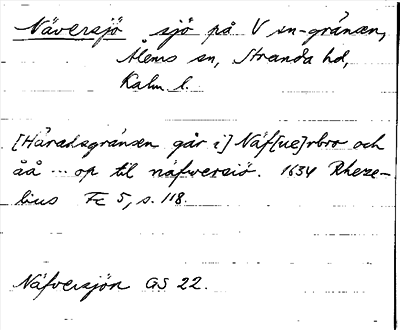 Näversjö sjö på V sn-gränsen,
Ålems sn, Stranda hd,
Kalm l.
[Häradsgränsen går i] Näf[ue]rbro och
åå ... op til näfwersiö. 1634 Rheze-
lius Fc 5, s. 118.
Näfversjön GS 22.